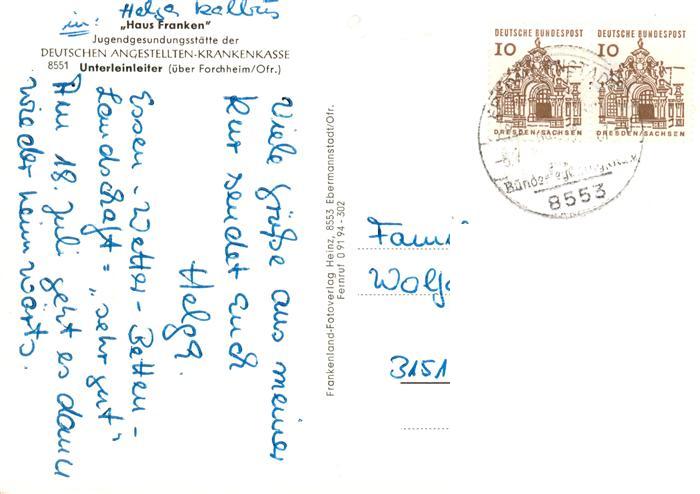 Helga Kalbus
in:
„Haus Franken"
Jugendgesundungsstätte der
DEUTSCHEN ANGESTELLTEN-KRANKENKASSE
8551 Unterleinleiter (über Forchheim/Ofr.)
Viele Grüße aus meiner
Kur sendet Euch
Helga.
Essen - Wetter - Betten -
Landschaft = „sehr gut"
Am 18. Juli geht es dann
wieder heimwärts.
Frankenland-Fotoverlag Heinz, 8553 Ebermannstadt/Ofr.
Fernruf 0 91 94 - 302
DEUTSCHE BUNDESPOST
10
DRESDEN/SACHSEN
DEUTSCHE BUNDESPOST
10
DRESDEN/SACHSEN
8553
Fami
Wolfg
3151